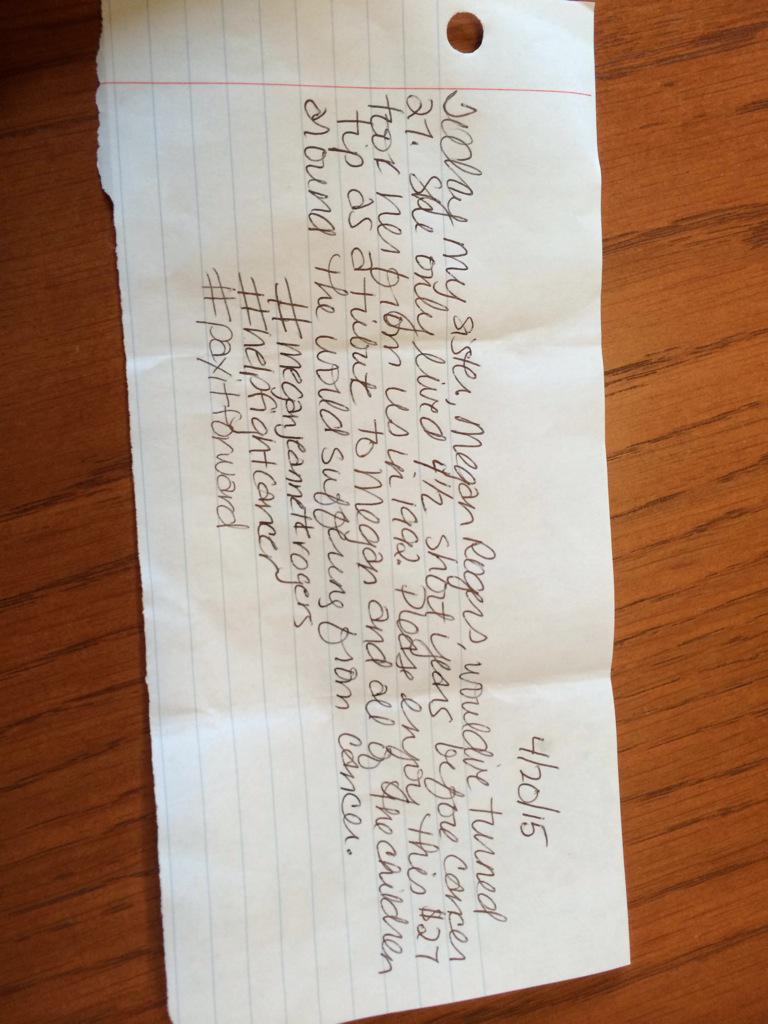 4/20/15
Today my sister, Megan Rogers, would've turned
27. She only lived 4 1/2 short years before cancer
took her from us in 1992. Please enjoy this $27
tip as a tribute to Megan and all of the children
around the world suffering from cancer.
#meganjeannettrogers
#helpfightcancer
#payitforward